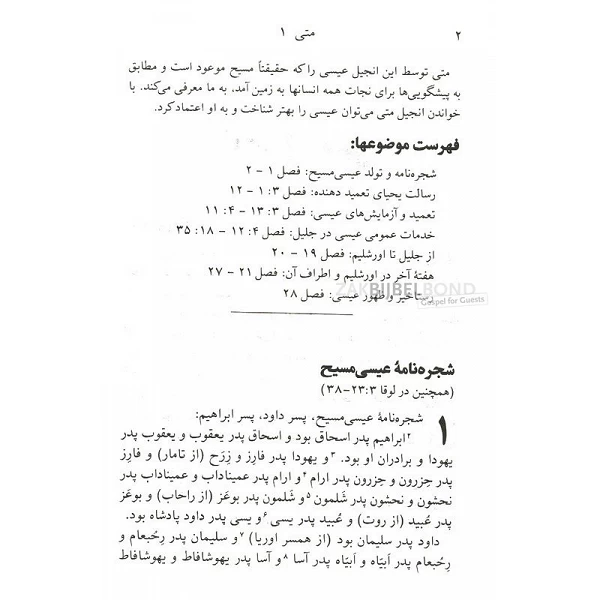 ۲ متی ۱
متی توسط این انجیل عیسی را که حقیقتاً مسیح موعود است و مطابق
به پیشگویی‌ها برای نجات همه انسانها به زمین آمد، به ما معرفی می‌کند. با
خواندن انجیل متی می‌توان عیسی را بهتر شناخت و به او اعتماد کرد.
فهرست موضوعها:
شجره‌نامه و تولد عیسی مسیح: فصل ۱ - ۲
رسالت یحیای تعمید دهنده: فصل ۳: ۱ - ۱۲
تعمید و آزمایش‌های عیسی: فصل ۳: ۱۳ - ۴: ۱۱
خدمات عمومی عیسی در جلیل: فصل ۴: ۱۲ - ۱۸: ۳۵
از جلیل تا اورشلیم: فصل ۱۹ - ۲۰
هفتهٔ آخر در اورشلیم و اطراف آن: فصل ۲۱ - ۲۷
ZAKBIJBELBOND
Gospel for Guests
رستاخیز و ظهور عیسی: فصل ۲۸
شجره‌نامهٔ عیسی مسیح
(همچنین در لوقا ۳: ۲۳-۳۸)
۱ شجره‌نامهٔ عیسی مسیح، پسر داود، پسر ابراهیم:
۲ابراهیم پدر اسحاق بود و اسحاق پدر یعقوب و یعقوب پدر
یهودا و برادران او بود. ۳و یهودا پدر فارز و زِرَح (از تامار) و فارز
پدر حِزرون و حِزرون پدر ارام ۴و ارام پدر عمیناداب و عمیناداب پدر
نحشون و نحشون پدر شَلمون ۵و شَلمون پدر بوعَز (از راحاب) و بوعَز
پدر عُبید (از روت) و عُبید پدر یسی ۶و یسی پدر داود پادشاه بود.
داود پدر سلیمان بود (از همسر اوریا) ۷و سلیمان پدر رِحُبعام و
رِحُبعام پدر اَبیّاه و اَبیّاه پدر آسا ۸و آسا پدر یهوشافاط و یهوشافاط